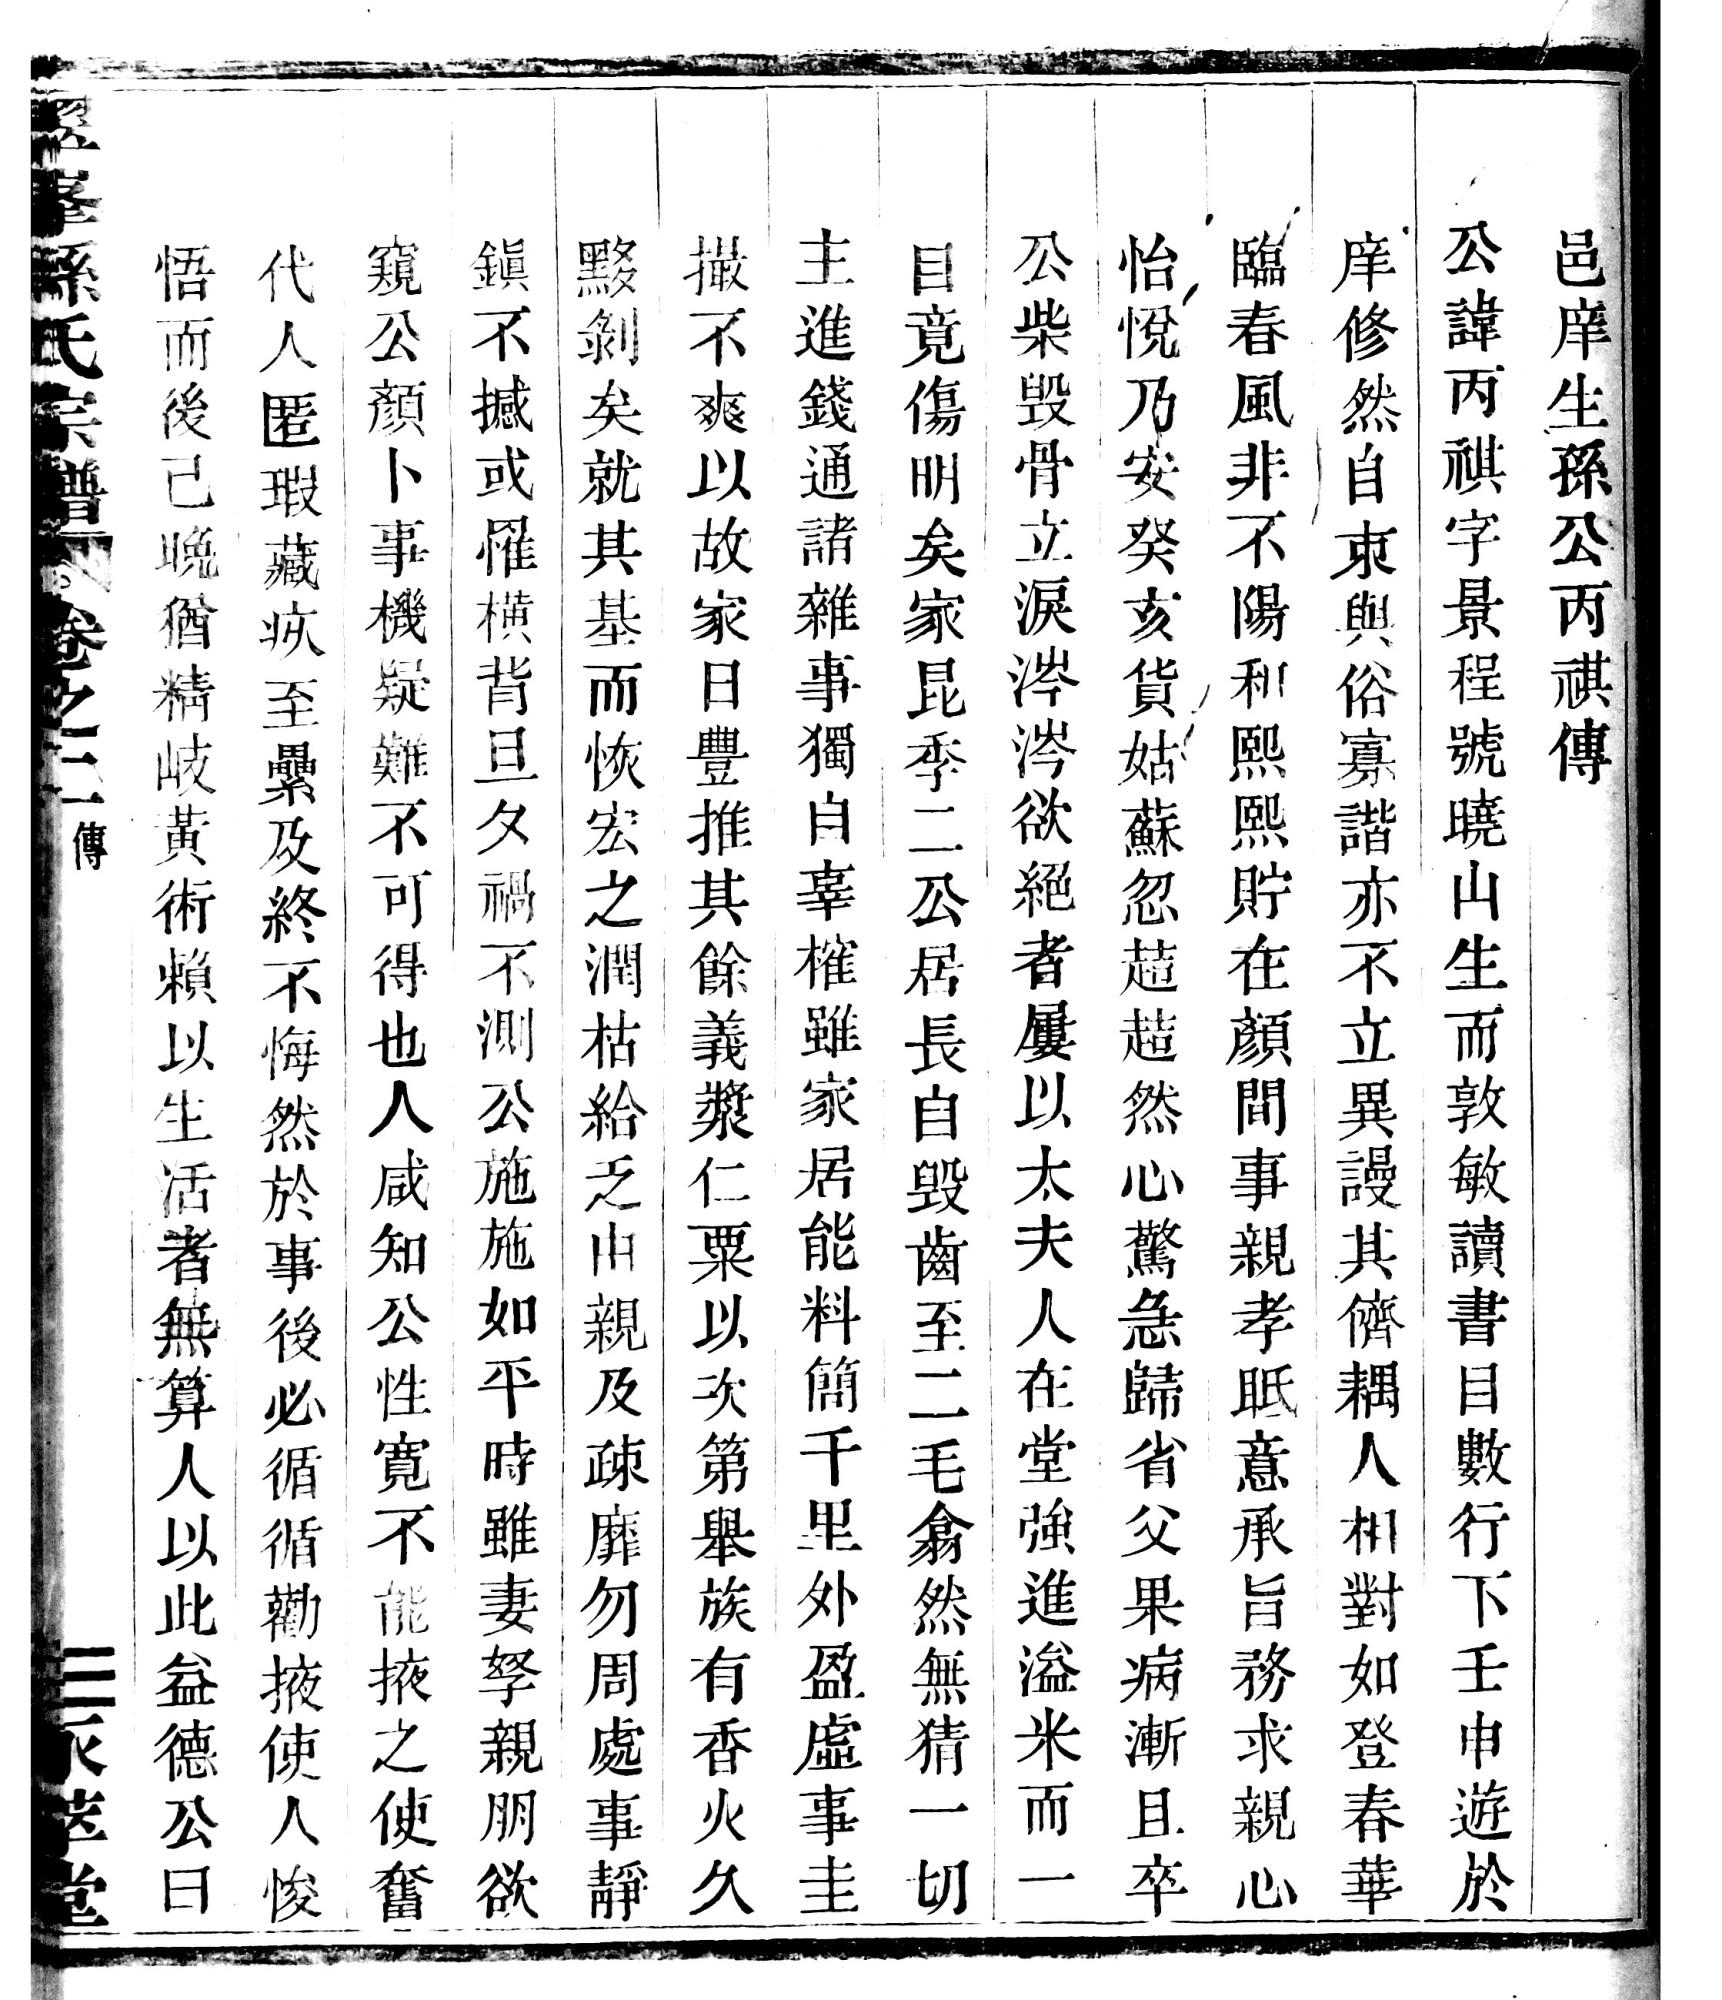 邑庠生孫公丙祺傳
公諱丙祺字景程號曉山生而敦敏讀書目數行下壬申遊於
庠修然自束與俗寡諧亦不立異謾其儕耦人相對如登春華
臨春風非不陽和熙熙貯在顏間事親孝眡意承旨務求親心
怡悅乃安癸亥貨姑蘇忽趌趌然心驚急歸省父果病漸且卒
公柴毀骨立淚涔涔欲絕者屢以太夫人在堂強進溢米而一
目竟傷明矣家昆季二公居長自毀齒至二毛翕然無猜一切
主進錢通諸雜事獨自辜榷雖家居能料簡千里外盈虛事圭
撮不爽以故家日豐推其餘義漿仁粟以次第舉族有香火久
黟剝矣就其基而恢宏之潤枯給乏由親及疎靡勿周處事靜
鎮不撼或罹橫背旦夕禍不測公施施如平時雖妻孥親朋欲
窺公顏卜事機疑難不可得也人咸知公性寬不能掖之使奮
代人匿瑕藏疚至纍及終不悔然於事後必循循勸掖使人悛
悟而後己晚猶精岐黃術賴以生活者無算人以此益德公曰
孫氏宗譜 卷之二 傳